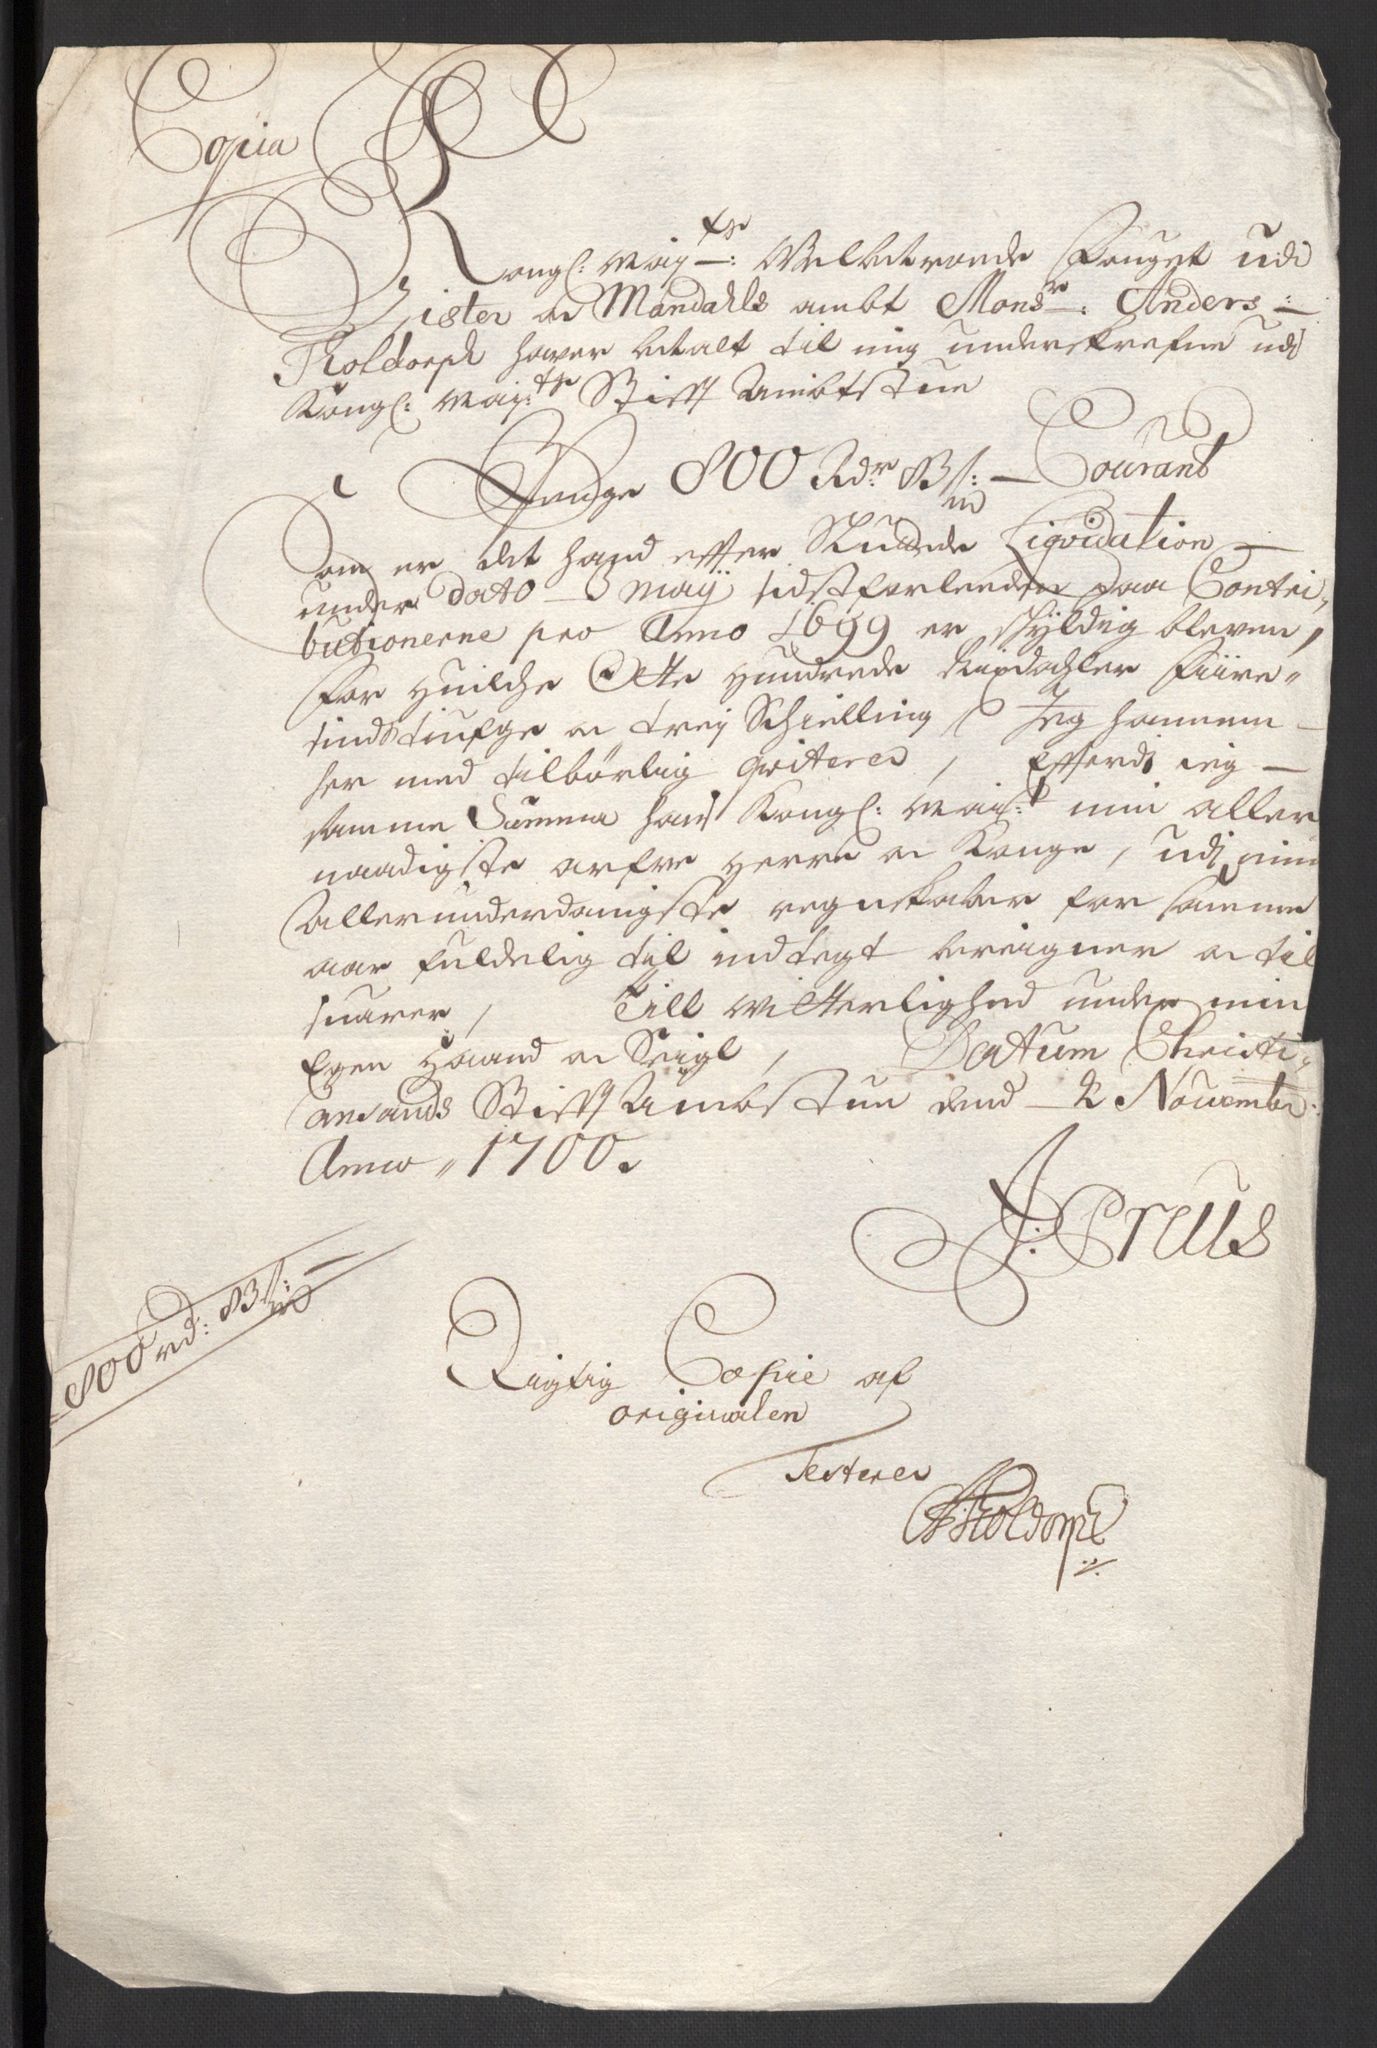 Copia
Kongl: Mayts: Velbetroede Fouget udi
Lister oc Mandahls ambt Monsr: Anders
Tholdorph hafver betalt til mig underskrefne udi
Kongl: Mayts: Stift Ambtstue
Penge 800 Rdr 83 s: Courant
Som er det hand efter sluttede Liqvidation
under dato Maij sidstforleeden paa Contri,
butionerne pro Anno 1699 er skyldig bleven,
for huilche Otte Hundrede Rixdahler Fiire-
sindstiufge oc trej Schielling Jeg hannem
her med tilbørlig qviterer, Efterdi ieg
samme Summa hans Kongl: Mait: min aller
naadigste arfve Herre oc Konge, udi min
allerunderdanigste regnskaber for samme
aar fuldelig til indtegt bereigner oc til
suarer, Till Vitterlighed under min
Egen Haand oc Seigl, Datum Christi,
ansands Stift Ambstue dend 2 Novembr:
Anno 1700.
J: Preus
800 rd: 83 s:
Rigtig Copie af
originalen
Testerer
ATholdorph